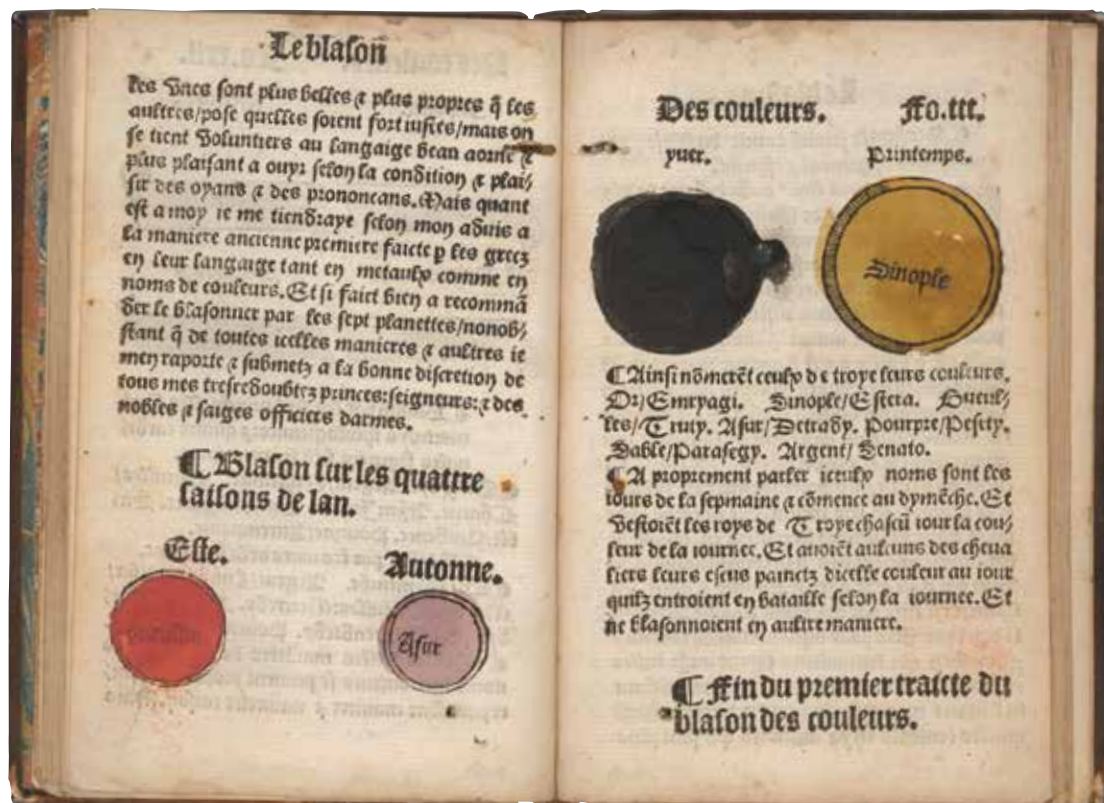 Le blason
les vnes sont plus belles ⁊ plus propres q̃ les
aultres/pose quelles soient fort iustes/mais on
se tient voluntiers au langaige beau aorne ⁊
plus plaisant a ouyr selon la condition ⁊ plai/
sir des oyans ⁊ des prononcans. Mais quant
est a moy ie me tiendraye selon mon aduis a
la maniere ancienne premiere faicte p les grecz
en leur langaige tant en metaulx comme en
noms de couleurs. Et si faict bien a recommã
der le blasonner par les sept planettes/nonob/
stant q̃ de toutes icelles manieres ⁊ aultres ie
men raporte ⁊ submetz a la bonne discretion de
tous mes tresredoubtez princes: seigneurs: ⁊ des
nobles ⁊ saiges officiers darmes.
¶ Blason sur les quattre
saisons de lan.
Este. Autonne.
Asur
Des couleurs. Fo.xxx.
yuer. Printemps.
Sinople
¶ Ainsi nõmerẽt ceulx de troye leurs couleurs.
Or/Emryagi. Sinople/Estera. Gueul/
les/Truty. Asur/Detrady. Pourpre/Pesity.
Sable/Parasegy. Argent/Senato.
¶ A proprement parler iceulx noms sont les
iours de la sepmaine ⁊ cõmence au dymẽche. Et
vestoiẽt les roys de Troye chascũ iour la cou/
leur de la iournee. Et auoiẽt aulcuns des cheua
liers leurs escus painctz dicelle couleur au iour
quilz entroient en bataille selon la iournee. Et
ne blasonnoient en aultre maniere.
¶ Fin du premier traicte du
blason des couleurs.